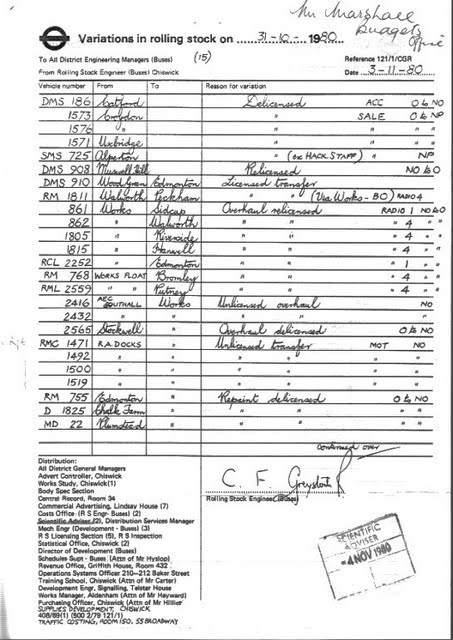 Mr Marshall
Budgets
Office
Variations in rolling stock on 31-10-1980
To All District Engineering Managers (Buses) (15)
Reference 121/1/CGR
From Rolling Stock Engineer (Buses) Chiswick
Date 3-11-80
Vehicle number From To Reason for variation
DMS 186 Catford Delicensed ACC O to NO
1573 Croydon " SALE O to NP
1576 " " " "
1571 Uxbridge " " "
SMS 725 Alperton " (ex HACK. STAFF) " NP
DMS 908 Muswell Hill Relicensed NO to O
DMS 910 Wood Green Edmonton Licensed transfer
RM 1811 Walworth Peckham " " (Via Works - BO) RADIO 4
861 Works Sidcup Overhaul relicensed RADIO 1 NO to O
862 " Walworth " " " 4 " "
1805 " Riverside " " " 4 " "
1815 " Hanwell " " " 4 " "
RCL 2252 " Edmonton " " " 1 " "
RM 768 WORKS FLOAT Bromley " " " 4 " "
RML 2559 " " Putney " " " 4 " "
2416 AEC SOUTHALL Works Unlicensed overhaul NO
2432 " " " " "
2565 Stockwell " Overhaul delicensed O to NO
RMC 1471 R.A. DOCKS " Unlicensed transfer MOT NO
1492 " " " " " "
1500 " " " " " "
1519 " " " " " "
RM 755 Edmonton " Repaint delicensed O to NO
D 1825 Chalk Farm " " " " "
MD 22 Plumstead " " " " "
continued over
Distribution:
All District General Managers
Advert Controller, Chiswick
Works Study, Chiswick(1)
Body Spec Section
Central Record, Room 34
Commercial Advertising, Lindsay House (7)
Costs Office (R S Engr- Buses) (2)
Scientific Adviser (2), Distribution Services Manager
Mech Engr (Development - Buses) (3)
R S Licensing Section (5), R S Inspection
Statistical Office, Chiswick (2)
Director of Development (Buses)
Schedules Supt - Buses (Attn of Mr Hyslop)
Revenue Office, Griffith House, Room 432
Operations Systems Officer 210-212 Baker Street
Training School, Chiswick (Attn of Mr Carter)
Development Engr, Signalling, Telster House
Works Manager, Aldenham (Attn of Mr Hayward)
Purchasing Officer, Chiswick (Attn of Mr Hillier)
SUPPLIES DEVELOPMENT, CHISWICK
408/89(1) (500 2/79 121/1)
TRAFFIC COSTING, ROOM 150, 55 BROADWAY
C. F.
Rolling Stock Engineer (Buses)
SCIENTIFIC
ADVISER
4 NOV 1980